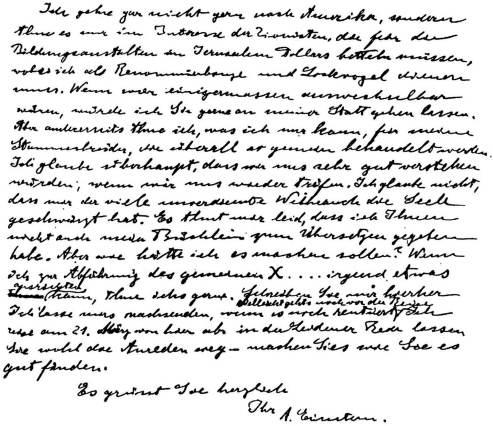 Ich gehe gar nicht gern nach Amerika, sondern
thue es nur im Interesse der Zionisten, die für die
Bildungsanstalten in Jerusalem Dollars betteln müssen,
wobei ich als Renommierbonze und Lockvogel dienen
muss. Wenn wir einigermassen auswechselbar
wären, würde ich Sie gerne an meiner Statt gehen lassen.
Aber andererseits thue ich, was ich nur kann, für meine
Stammesbrüder, die überall so gemein behandelt werden.
Ich glaube überhaupt, dass wir uns sehr gut verstehen
würden, wenn wir uns wieder träfen. Ich glaube nicht,
dass mir der viele unverdiente Weihrauch die Seele
geschwärzt hat. Es thut mir leid, dass ich Ihnen
nicht auch mein Büchlein zum Übersetzen gegeben
habe. Aber wie hätte ich es machen sollen? Wenn
ich zur Abführung des gemeinen X.... irgend etwas
kann, thue ichs gerne. Schreiben Sie mir hierher
vielleicht gehts noch vor der Reise
Ich lasse mirs nachsenden, wenn es noch Ich
reise am 21. März von hier ab. in der Leidener Rede lassen
Sie wohl die Anreden weg – machen Sies wie Sie es
gut finden.
Es grüsst Sie herzlich
Ihr
A. Einstein.